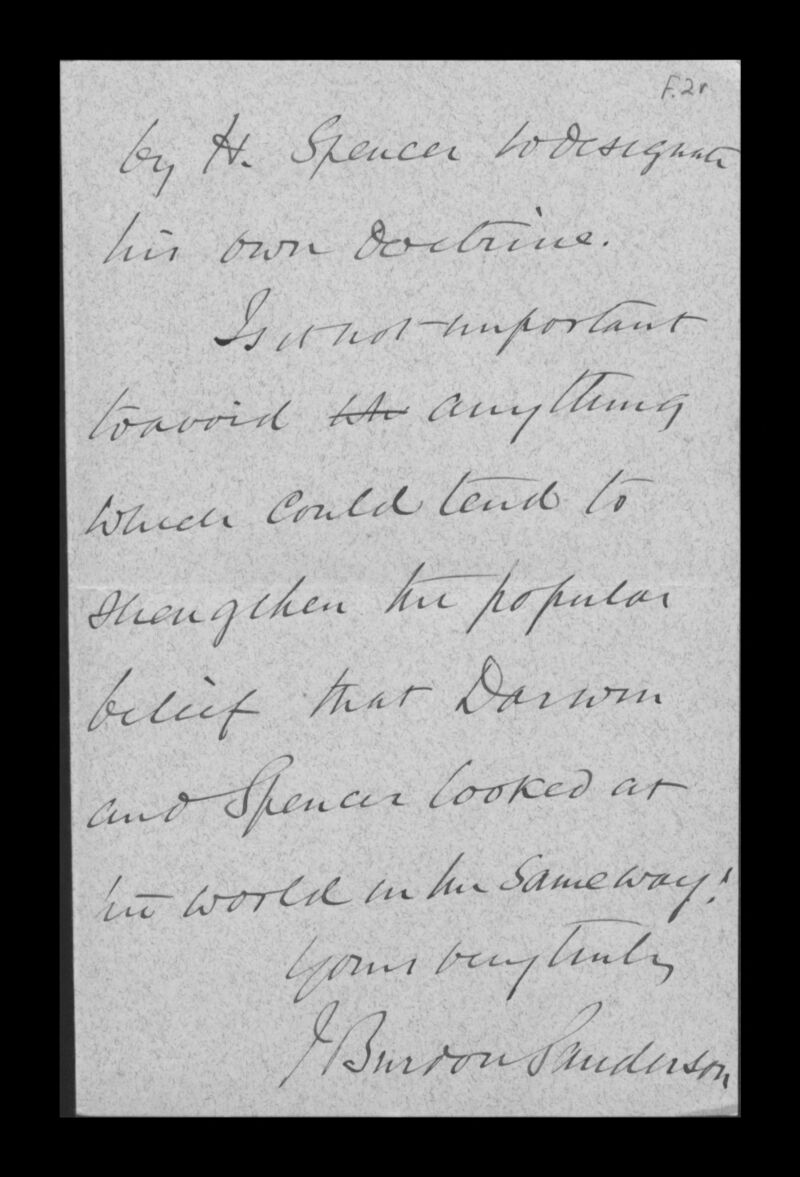 F.2r
by H. Spencer to designate
his own doctrine.
Is it not important
to avoid the anything
which could tend to
strengthen the popular
belief that Darwin
and Spencer looked at
the world in the same way!
Yours very truly
J Burdon Sanderson